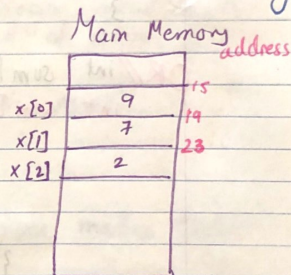 Main Memory
address
15
x[0] 9
19
x[1] 7
23
x[2] 2